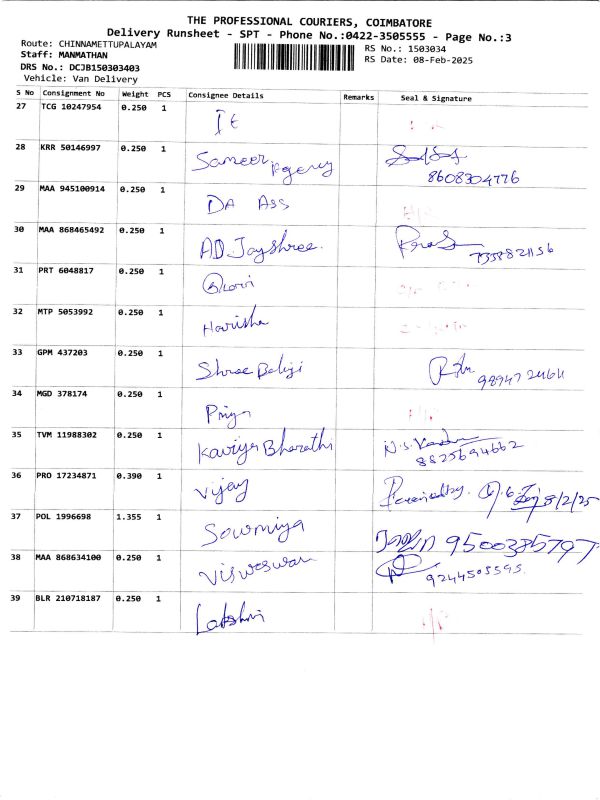 THE PROFESSIONAL COURIERS, COIMBATORE
Delivery Runsheet - SPT - Phone No.:0422-3505555 - Page No.:3
Route: CHINNAMETTUPALAYAM
Staff: MANMATHAN
DRS No.: DCJB150303403
Vehicle: Van Delivery
RS No.: 1503034
RS Date: 08-Feb-2025
S No Consignment No Weight PCS Consignee Details Remarks Seal & Signature
27 TCG 10247954 0.250 1
28 KRR 50146997 0.250 1 Sameer Agency
8608304776
29 MAA 945100914 0.250 1 DA Ass
30 MAA 868465492 0.250 1 AD Jayshree.
31 PRT 6048817 0.250 1
32 MTP 5053992 0.250 1 Harisha
33 GPM 437203 0.250 1 Shree Balaji
34 MGD 378174 0.250 1 Priya
35 TVM 11988302 0.250 1 Kaviya Bharathi
8825694662
36 PRO 17234871 0.390 1 Vijay Received by. 8/2/25
37 POL 1996698 1.355 1 Sowmiya 9500385797
38 MAA 868634100 0.250 1 Visweswaran
9244505595
39 BLR 210718187 0.250 1 Lakshmi